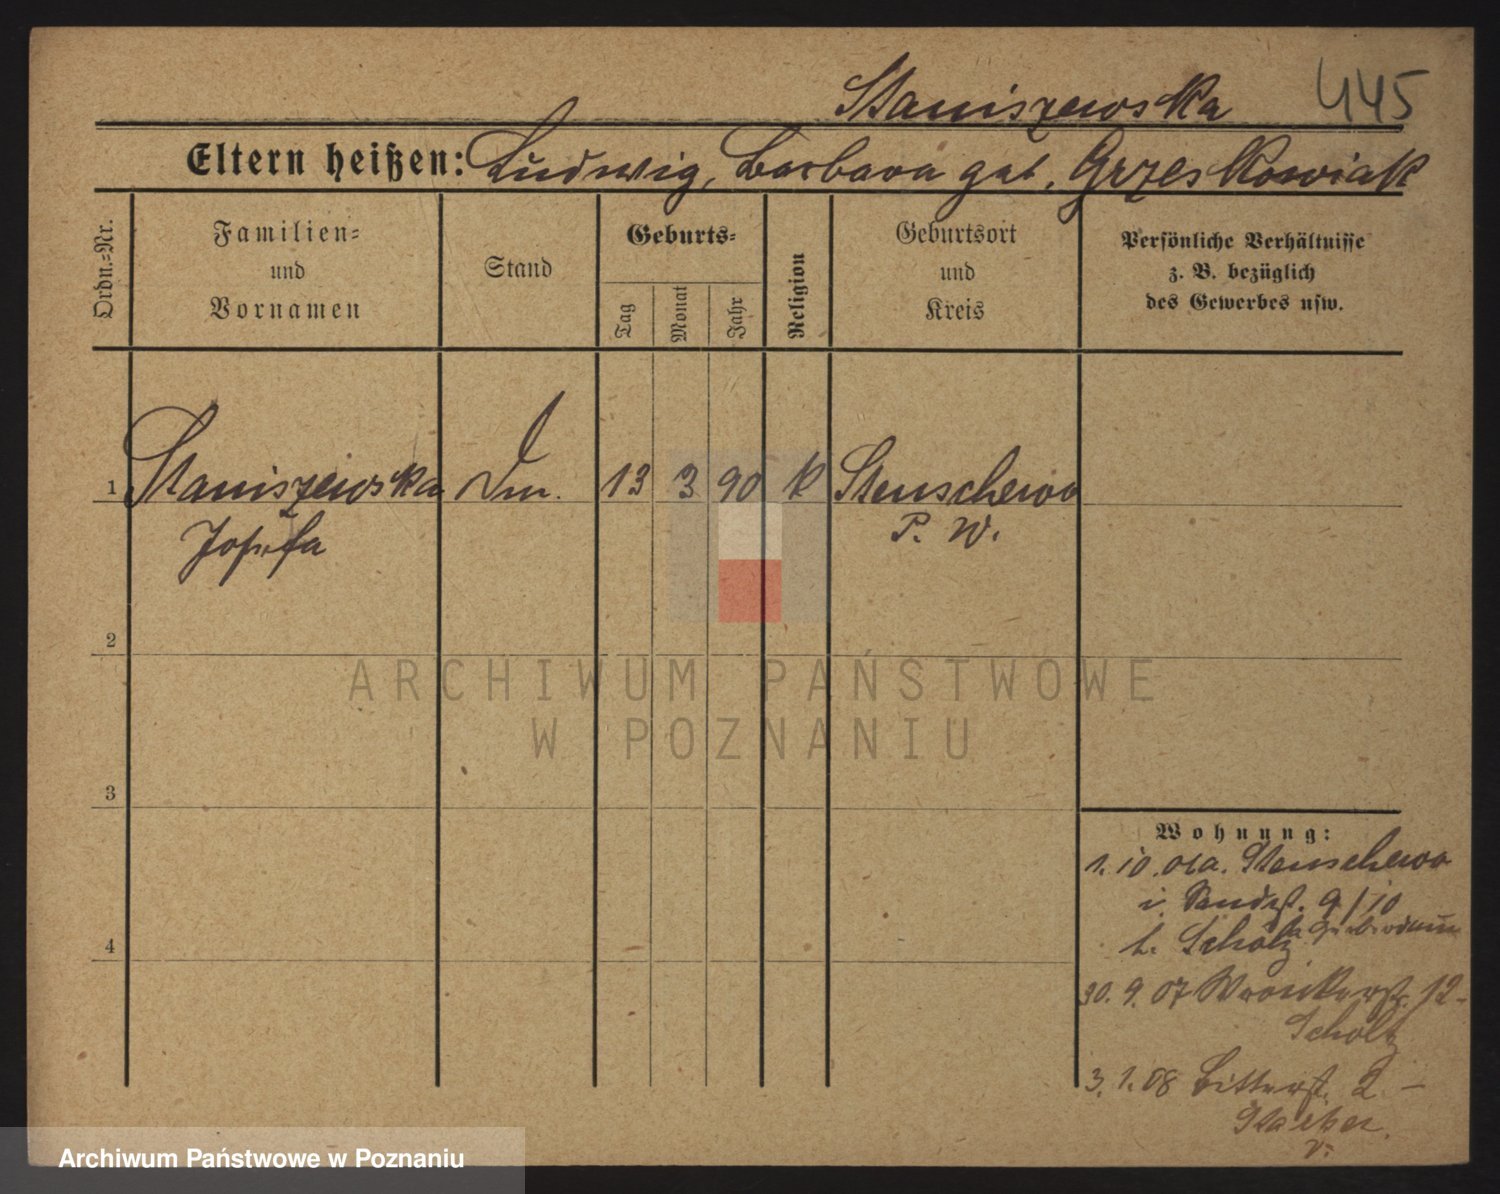 Staniszewska 445
Eltern heißen: Ludwig, Barbara geb. Grzeskowiak
Ordn.-Nr.
Familien-
und
Vornamen
Stand
Geburts-
Tag
Monat
Jahr
Religion
Geburtsort
und
Kreis
Persönliche Verhältnisse
z. B. bezüglich
des Gewerbes usw.
1 Staniszewska 13 3 90 k Stenschewo
Josefa P. W.
2
3
4
Wohnung:
1.10.06 a. Stenschewo
i. 9/10
b. Scholz
30.9.07 Wronkerstr. 12 -
Scholtz
3.1.08 Bitterstr. 2 -
ARCHIWUM PAŃSTWOWE
W POZNANIU
Archiwum Państwowe w Poznaniu